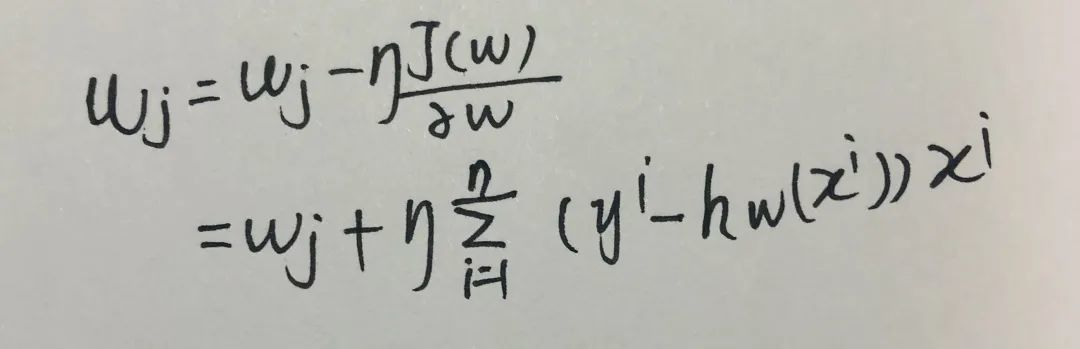 wj = wj - η J(w)/∂w
= wj + η n∑i=1 (y^i - hw(x^i)) x^i